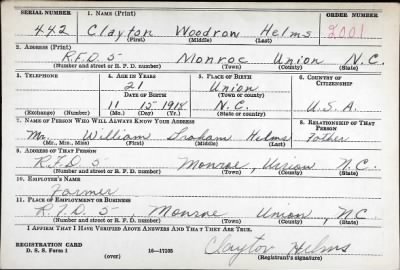 SERIAL NUMBER 1. NAME (Print) ORDER NUMBER
442 Clayton Woodrow Helms 2001
(First) (Middle) (Last)
2. ADDRESS (Print)
R.F.D. 5 Monroe Union N.C.
(Number and street or R. F. D. number) (Town) (County) (State)
3. TELEPHONE 4. AGE IN YEARS 5. PLACE OF BIRTH 6. COUNTRY OF CITIZENSHIP
21 Union
DATE OF BIRTH (Town or county)
11 15 1918 N.C. U.S.A.
(Exchange) (Number) (Mo.) (Day) (Yr.) (State or country)
7. NAME OF PERSON WHO WILL ALWAYS KNOW YOUR ADDRESS 8. RELATIONSHIP OF THAT PERSON
Mr. William Graham Helms Father
(Mr., Mrs., Miss) (First) (Middle) (Last)
9. ADDRESS OF THAT PERSON
R.F.D 5 Monroe, Union N.C.
(Number and street or R. F. D. number) (Town) (County) (State)
10. EMPLOYER'S NAME
Farmer
11. PLACE OF EMPLOYMENT OR BUSINESS
R.F.D 5 Monroe Union, N.C.
(Number and street or R. F. D. number) (Town) (County) (State)
I AFFIRM THAT I HAVE VERIFIED ABOVE ANSWERS AND THAT THEY ARE TRUE.
REGISTRATION CARD
D. S. S. Form 1 16—17105 Clayton Helms
(over) (Registrant's signature)